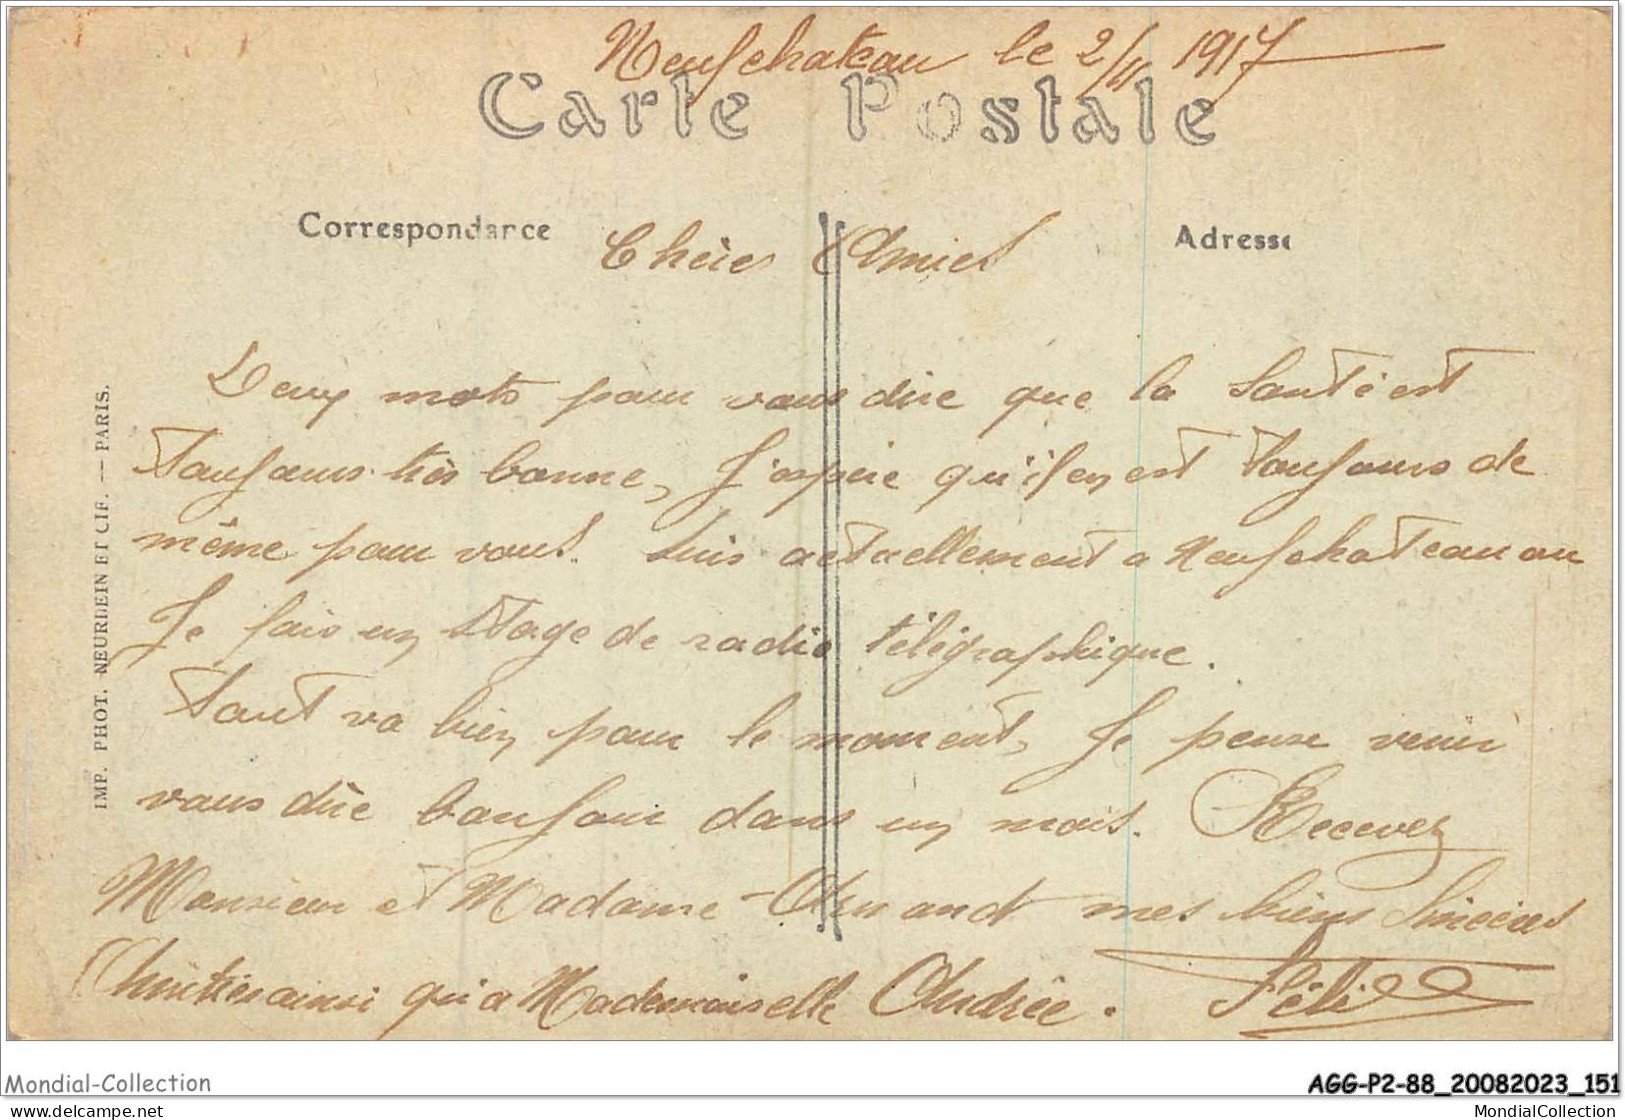 Neufchateau le 2/11 1917
Carte Postale
Correspondance
Adresse
Chèies Amies
Deux mots pour vous dire que la Santé est
Toujours très bonne, J'espère qu'il en est Toujours de
même pour vous. Suis actuellement a Neufchateau ou
Je fais un Stage de radio télégraphique.
Tout va bien pour le moment, Je pense venir
vous dire bonjour dans un mois. Recevez
Monsieur et Madame Armand mes biens Sincères
Amitiés ainsi qu'a Mademoiselle Andrée.
Féli
IMP. PHOT. NEURDEIN ET CIE. — PARIS.
Mondial-Collection
AGG-P2-88_20082023_151
delcampe.net
MondialCollection